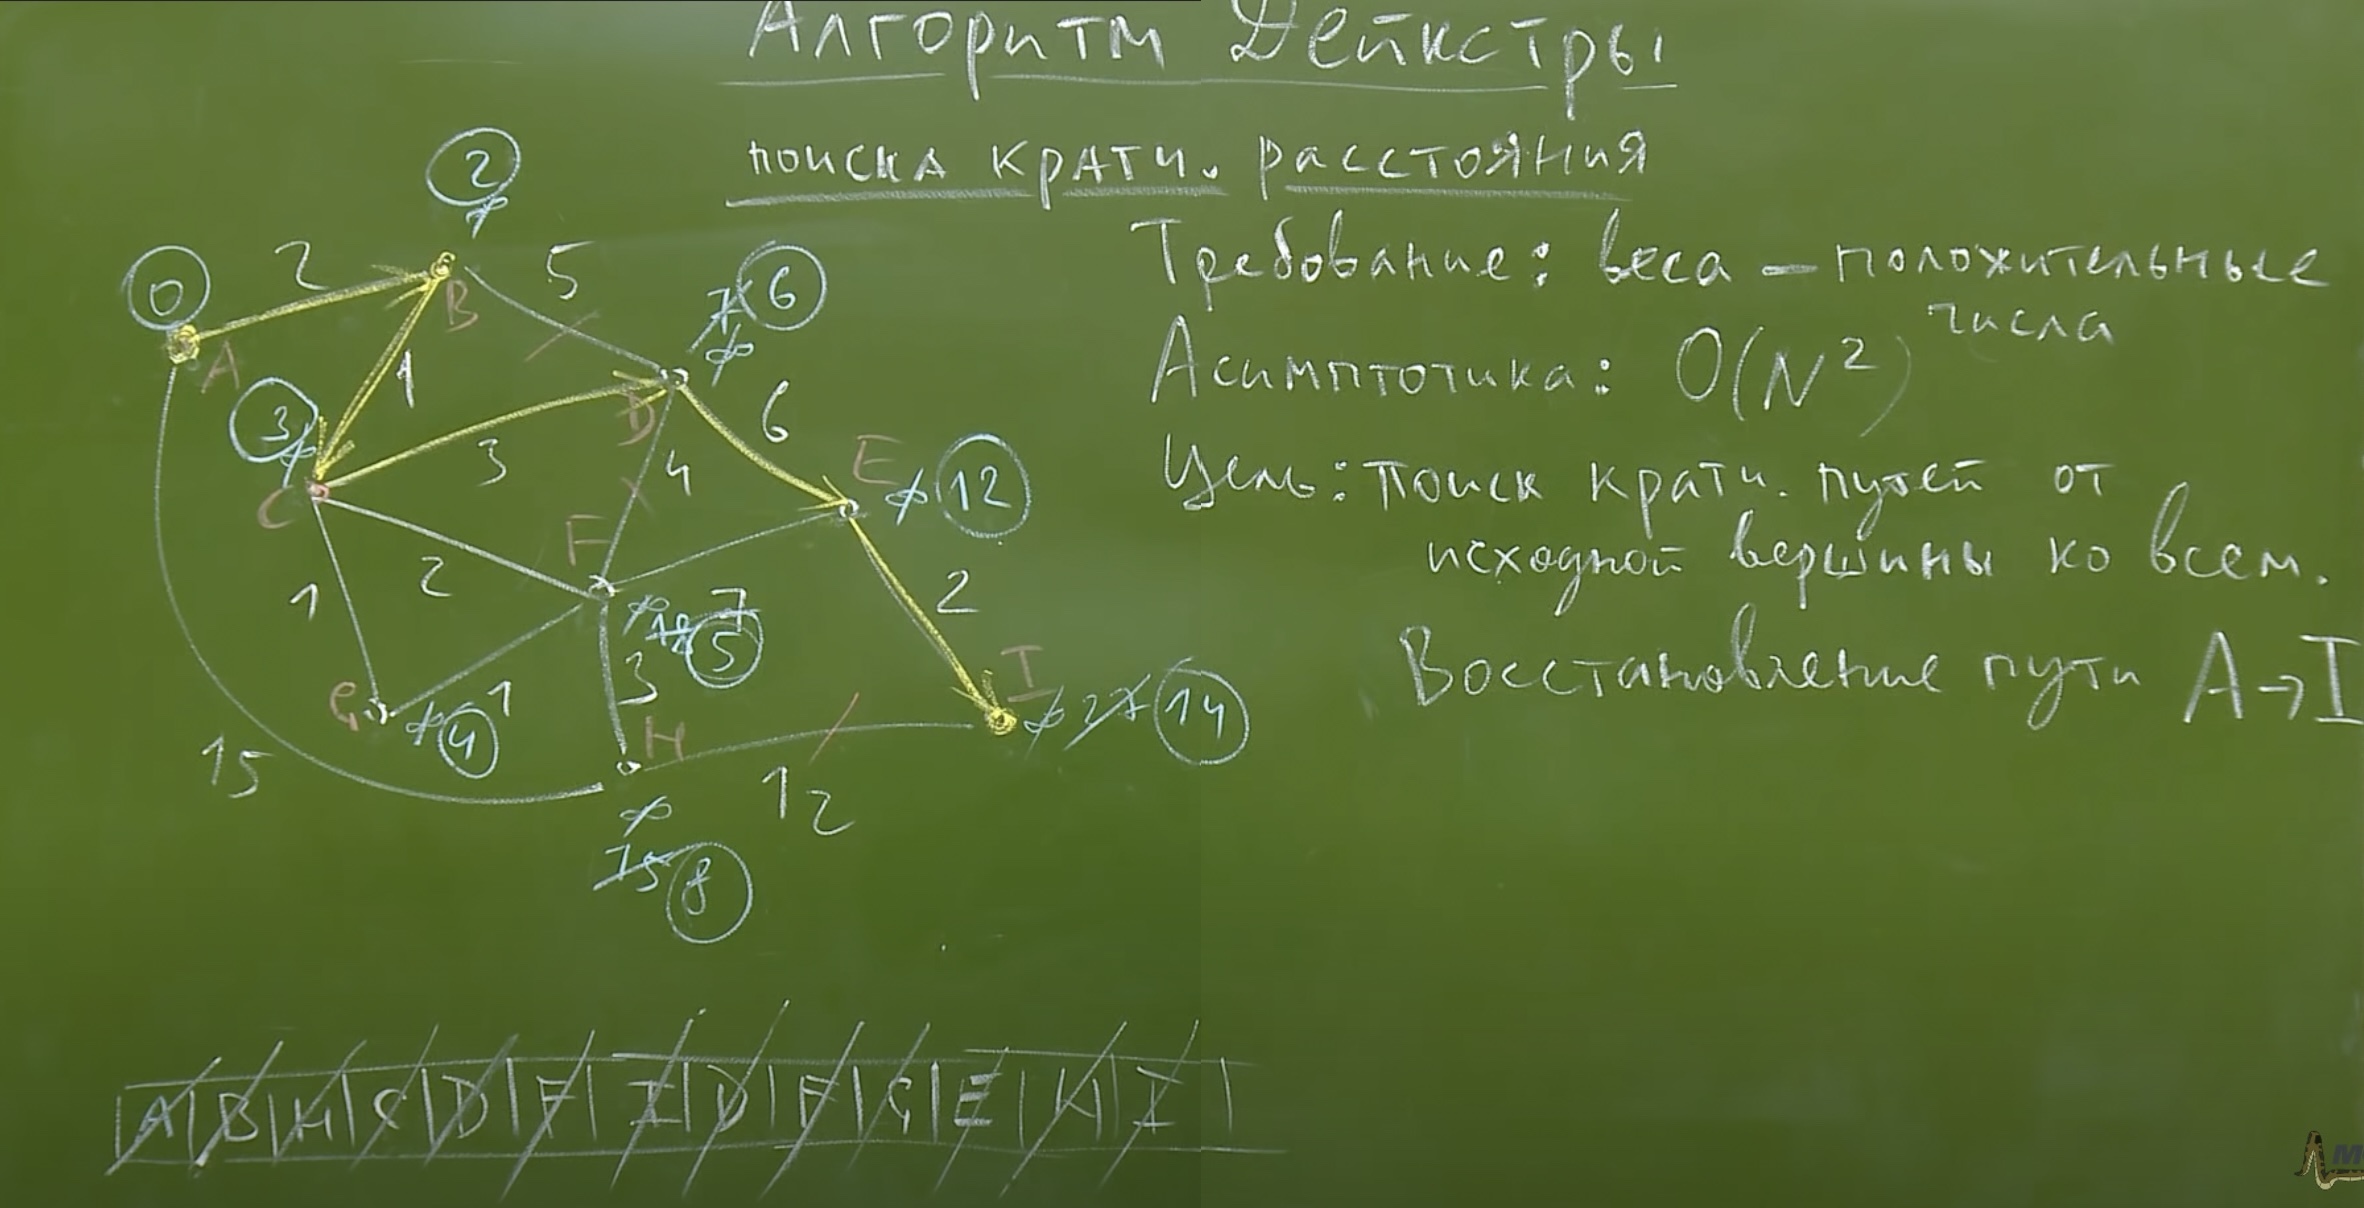 Алгоритм Дейкстры
поиска кратч. расстояния
Требование: веса — положительные
числа
Асимптотика: O(N²)
Цель: поиск кратч. путей от
исходной вершины ко всем.
Восстановление пути A→I
2
∞
0
2
5
7 6
∞
A
B
1
3
∞
D
6
3
E
∞ 12
C
4
F
2
1
2
∞ 7
5
3
I
∞ 27 14
G
∞ 4
1
H
15
12
∞
15 8
A B H C D F I D F G E H I